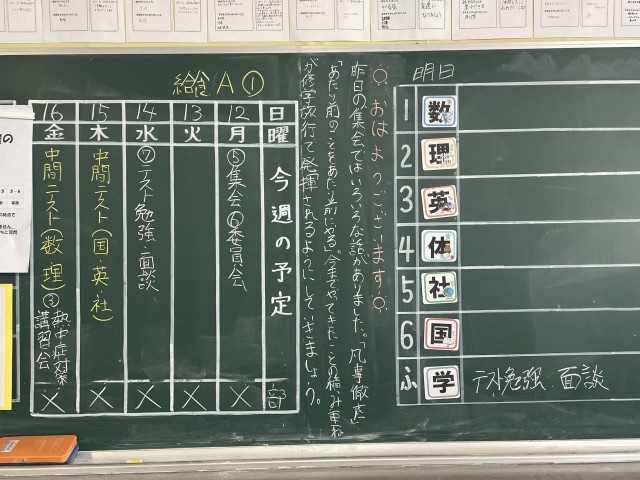 給食 A ①
日 12 13 14 15 16
曜 月 火 水 木 金
今週の予定
⑤集会⑥委員会
⑦テスト勉強・面談
中間テスト(国・英・社)
中間テスト(数・理)③熱中症対策講習会
部 × × × × ×
おはようございます
昨日の集会ではいろいろな話がありました。「凡事徹底」
「あたり前のことをあたり前にやる。」今までやってきたことの積み重ね
が修学旅行で発揮されるようにしていきましょう。
明日
1 数
2 理
3 英
4 体
5 社
6 国
ふ 学 テスト勉強・面談